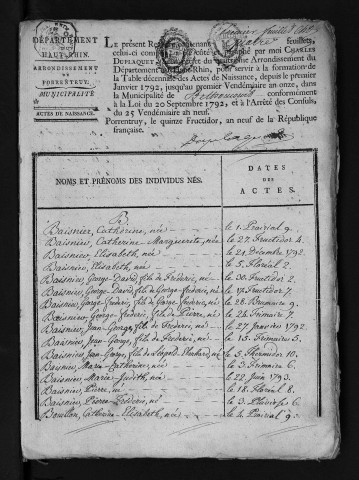 DÉPARTEMENT
DU
HAUT-RHIN.
ARRONDISSEMENT
DE
PORRENTRUY.
MUNICIPALITÉ
ACTES DE NAISSANCE.
LE présent Registre, contenant quatre feuillets,
celui-ci compris, a été coté et paraphé par moi CHARLES
DEFLAQUET, Arrondissement du
Département du Haut-Rhin, pour servir à la formation de
la Table décennale des Actes de Naissance, depuis le premier
Janvier 1792, jusques au premier Vendémiaire an onze, dans
la Municipalité de conformément
à la Loi du 20 Septembre 1792, et à l'Arrêté des Consuls,
du 25 Vendémiaire an neuf.
Porrentruy, le quinze Fructidor, an neuf de la République
française.
NOMS ET PRÉNOMS DES INDIVIDUS NÉS.
DATES
DES
ACTES.
B
Baisnier, Cathérine, née
le 1. Prairial 9.
Baisnier, Catherine-Marguerite, née
le 27. Fructidor 4.
Baisnier, Elisabeth, née
le 21. Décembre 1792.
Baisnier, Elisabeth, née
le 5. Floréal 2.
Baisnier, George-David, fils de Fréderic, né
le 30. Fructidor 2.
Baisnier, George-David, fils de George-Fréderic, né
le 17. Fructidor 7.
Baisnier, George-Fréderic, fils de George-Fréderic, né
le 28. Brumaire 9.
Baisnier, George-Fréderic, fils de Pierre, né
le 24. Frimaire 7.
Baisnier, Jean-George, fils de Fréderic, né
le 27. Janvier 1792.
Baisnier, Jean-George, fils de Fréderic, né
le 15. Frimaire 5.
Baisnier, Jean-George, fils de Léopold-Eberhard, né
le 5. Thermidor 10.
Baisnier, Marie-Catherine, née
le 3. Frimaire 6.
Baisnier, Marie-Judith, née
le 22. Juin 1793.
Baisnier, Pierre, né
le 18. Floréal 8.
Baisnier, Pierre-Fréderic, né
le 3. Pluviôse 6
Bouillon, Catherine-Elisabeth, née
le 4. Prairial 9.